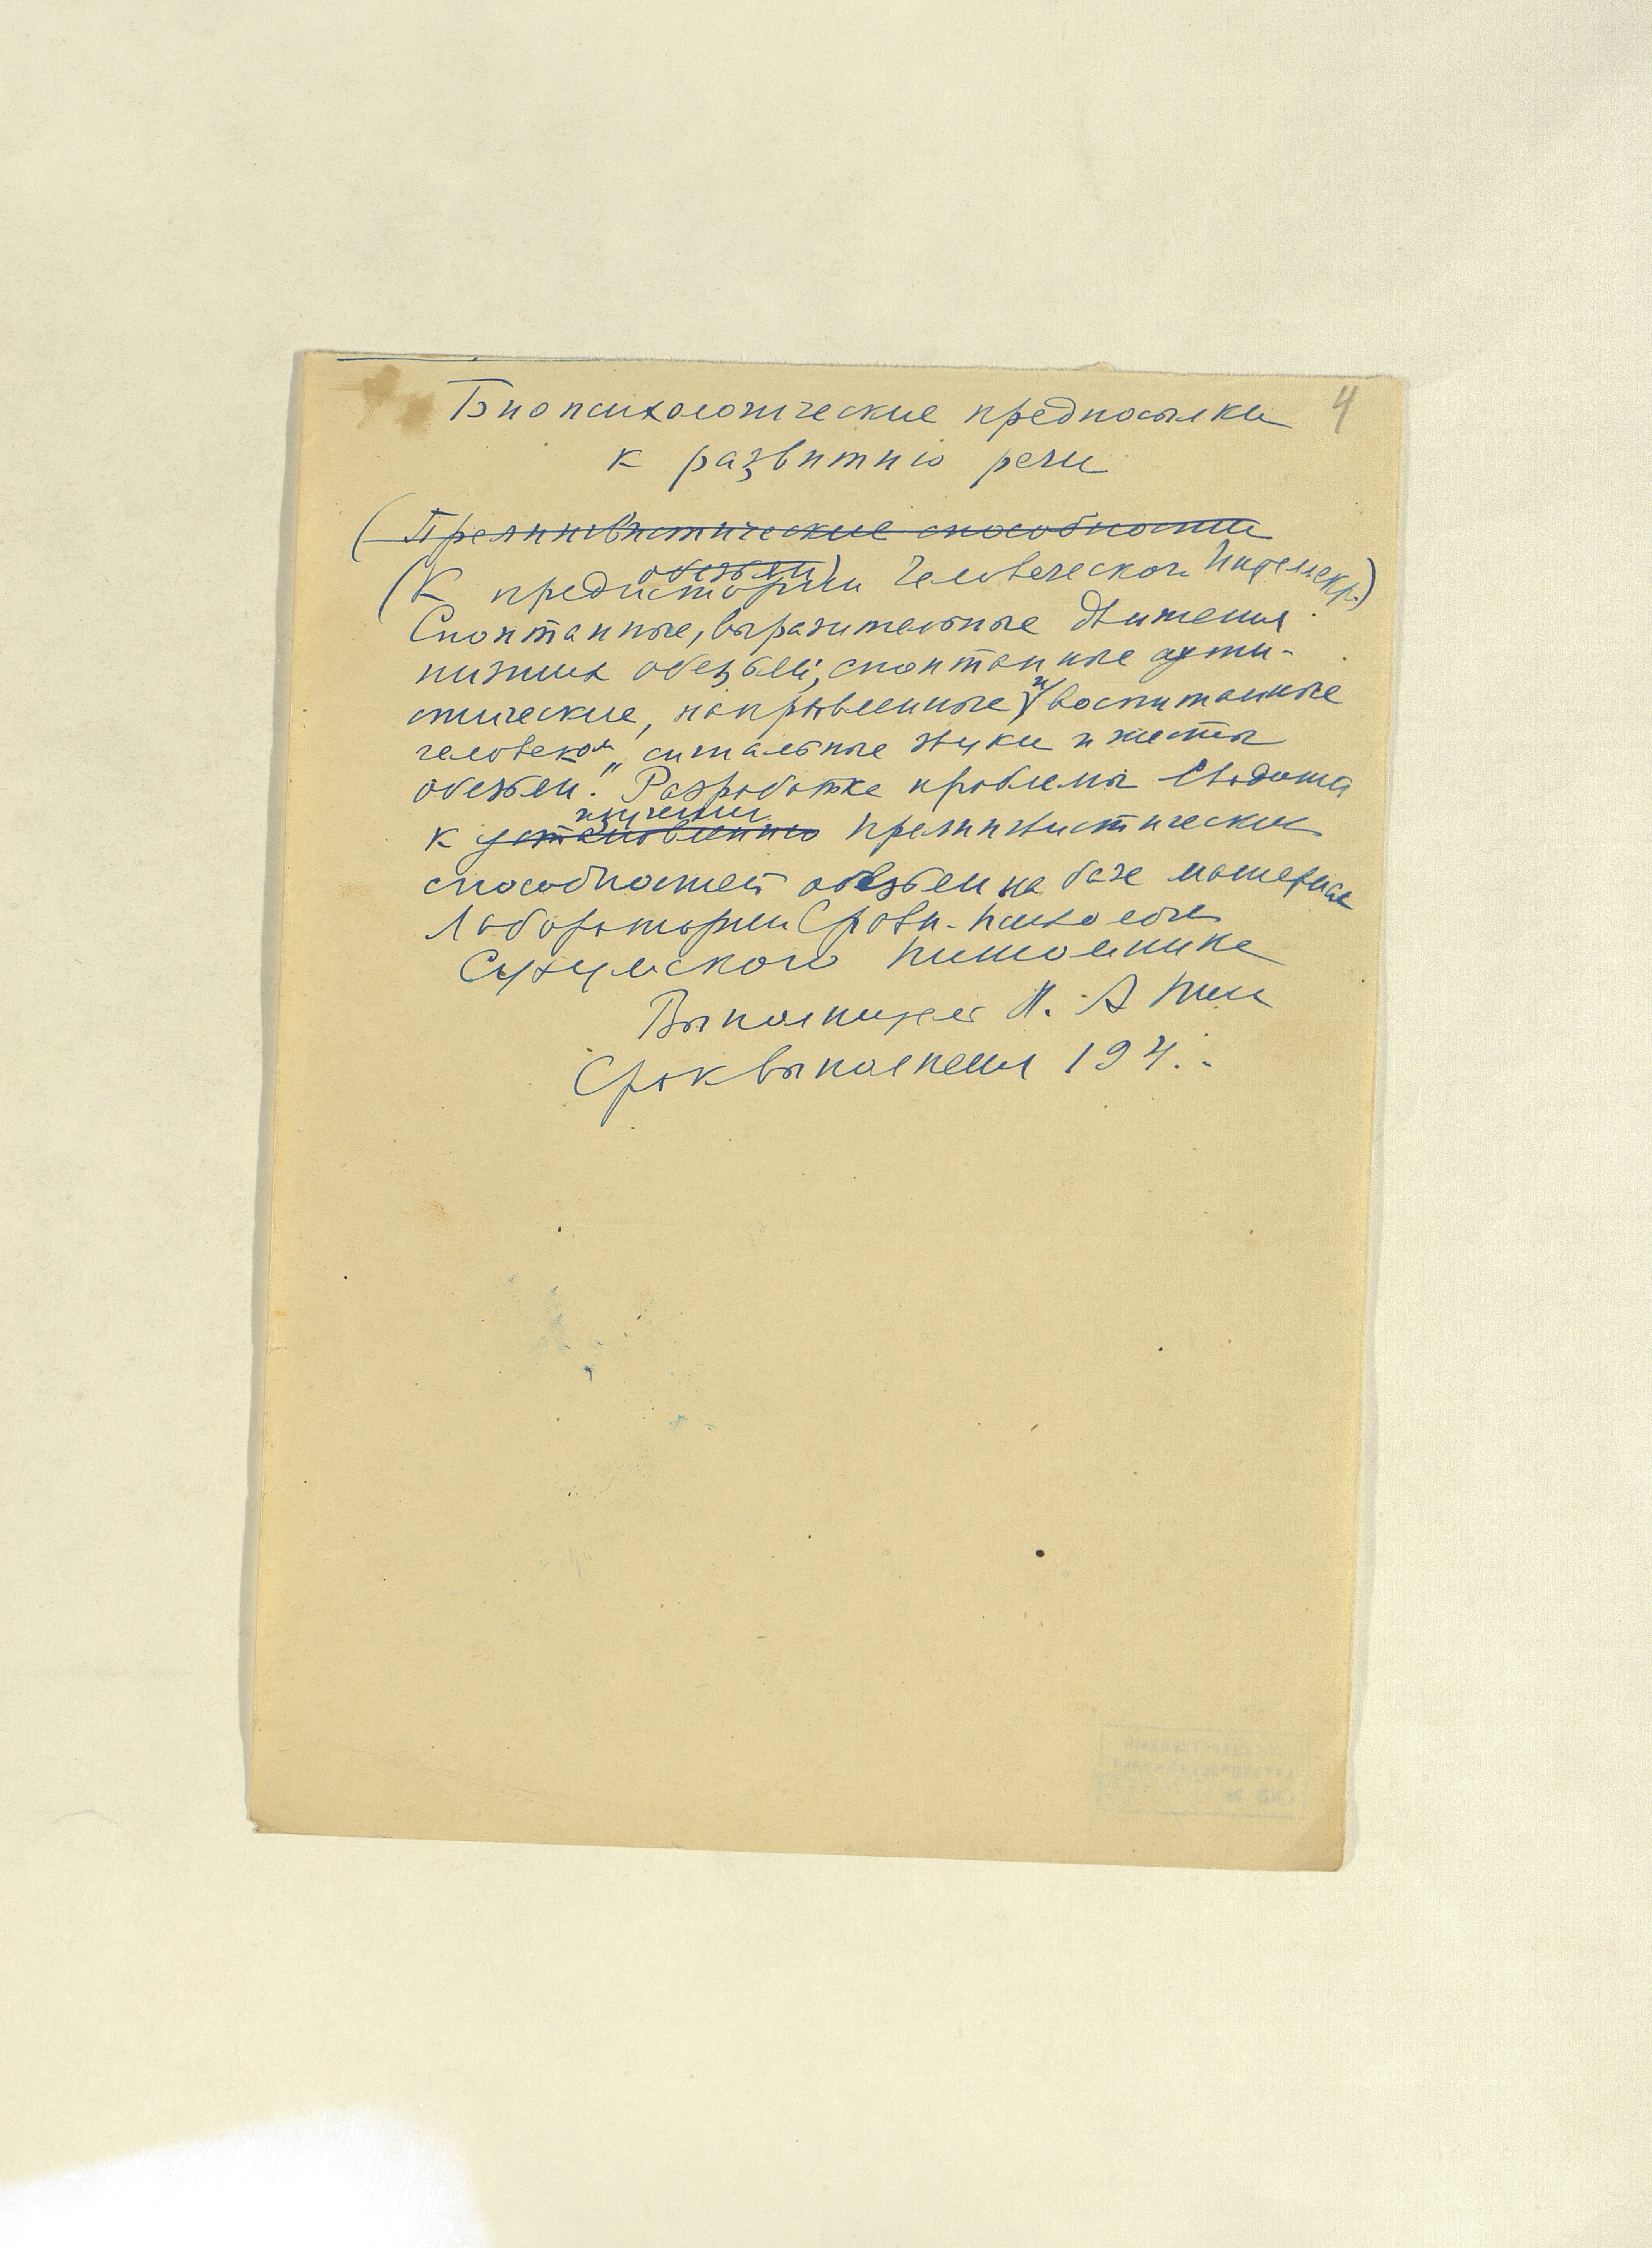 4
Биопсихологические предпосылки
к развитию речи
(Прелингвистические способности
обезьян)
(К предистории человеческого интеллекр.)
Спонтанные, выразительные движения
низших обезьян; спонтанные
стические, направленные и воспитанные
человеком „сигнальные звуки и жесты
обезьян." Разработка проблемы сводится
изучении
к установлению прелингвистических
способностей обезьян на базе материала
Лаборатории Сравн. психологии
Сухумского питомника
Выполнител
Срок выполнения 194..